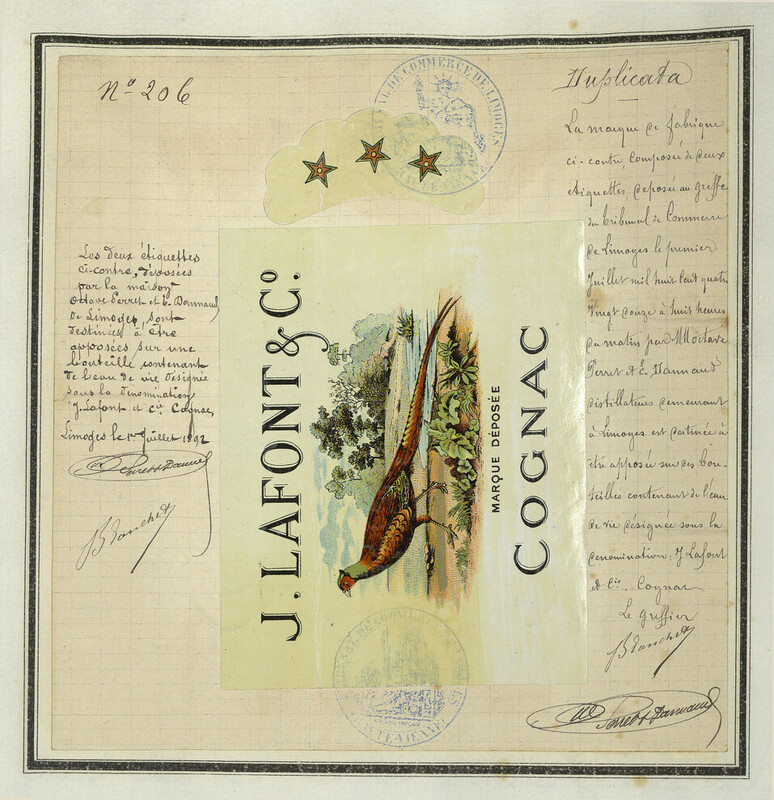 Nº 206
Duplicata
La marque de fabrique
ci-contre, composée de deux
étiquettes, déposée au greffe
du tribunal de Commerce
de Limoges le premier
Juillet mil huit cent quatre
vingt douze à huit heures
du matin par MM Octave
Perret et E. Dannaud
distillateurs demeurant
à Limoges est destinée à
être apposée sur des bou-
teilles contenant de l'eau
de vie désignée sous la
dénomination J Lafont
et Cie. Cognac
Le Greffier
Blanchet
Perret & Dannaud
Les deux étiquettes
ci-contre, déposées
par la maison
Octave Perret et E. Dannaud
de Limoges, sont
destinées à être
apposées sur une
bouteille contenant
de l'eau de vie désignée
sous la dénomination
J. Lafont et Cie Cognac,
Limoges le 1er Juillet 1892
Perret & Dannaud
Blanchet
J. LAFONT & Cº.
MARQUE DÉPOSÉE
COGNAC
DE COMMERCE DE LIMOGES
DE COMMERCE DE
HAUTE-VIENNE